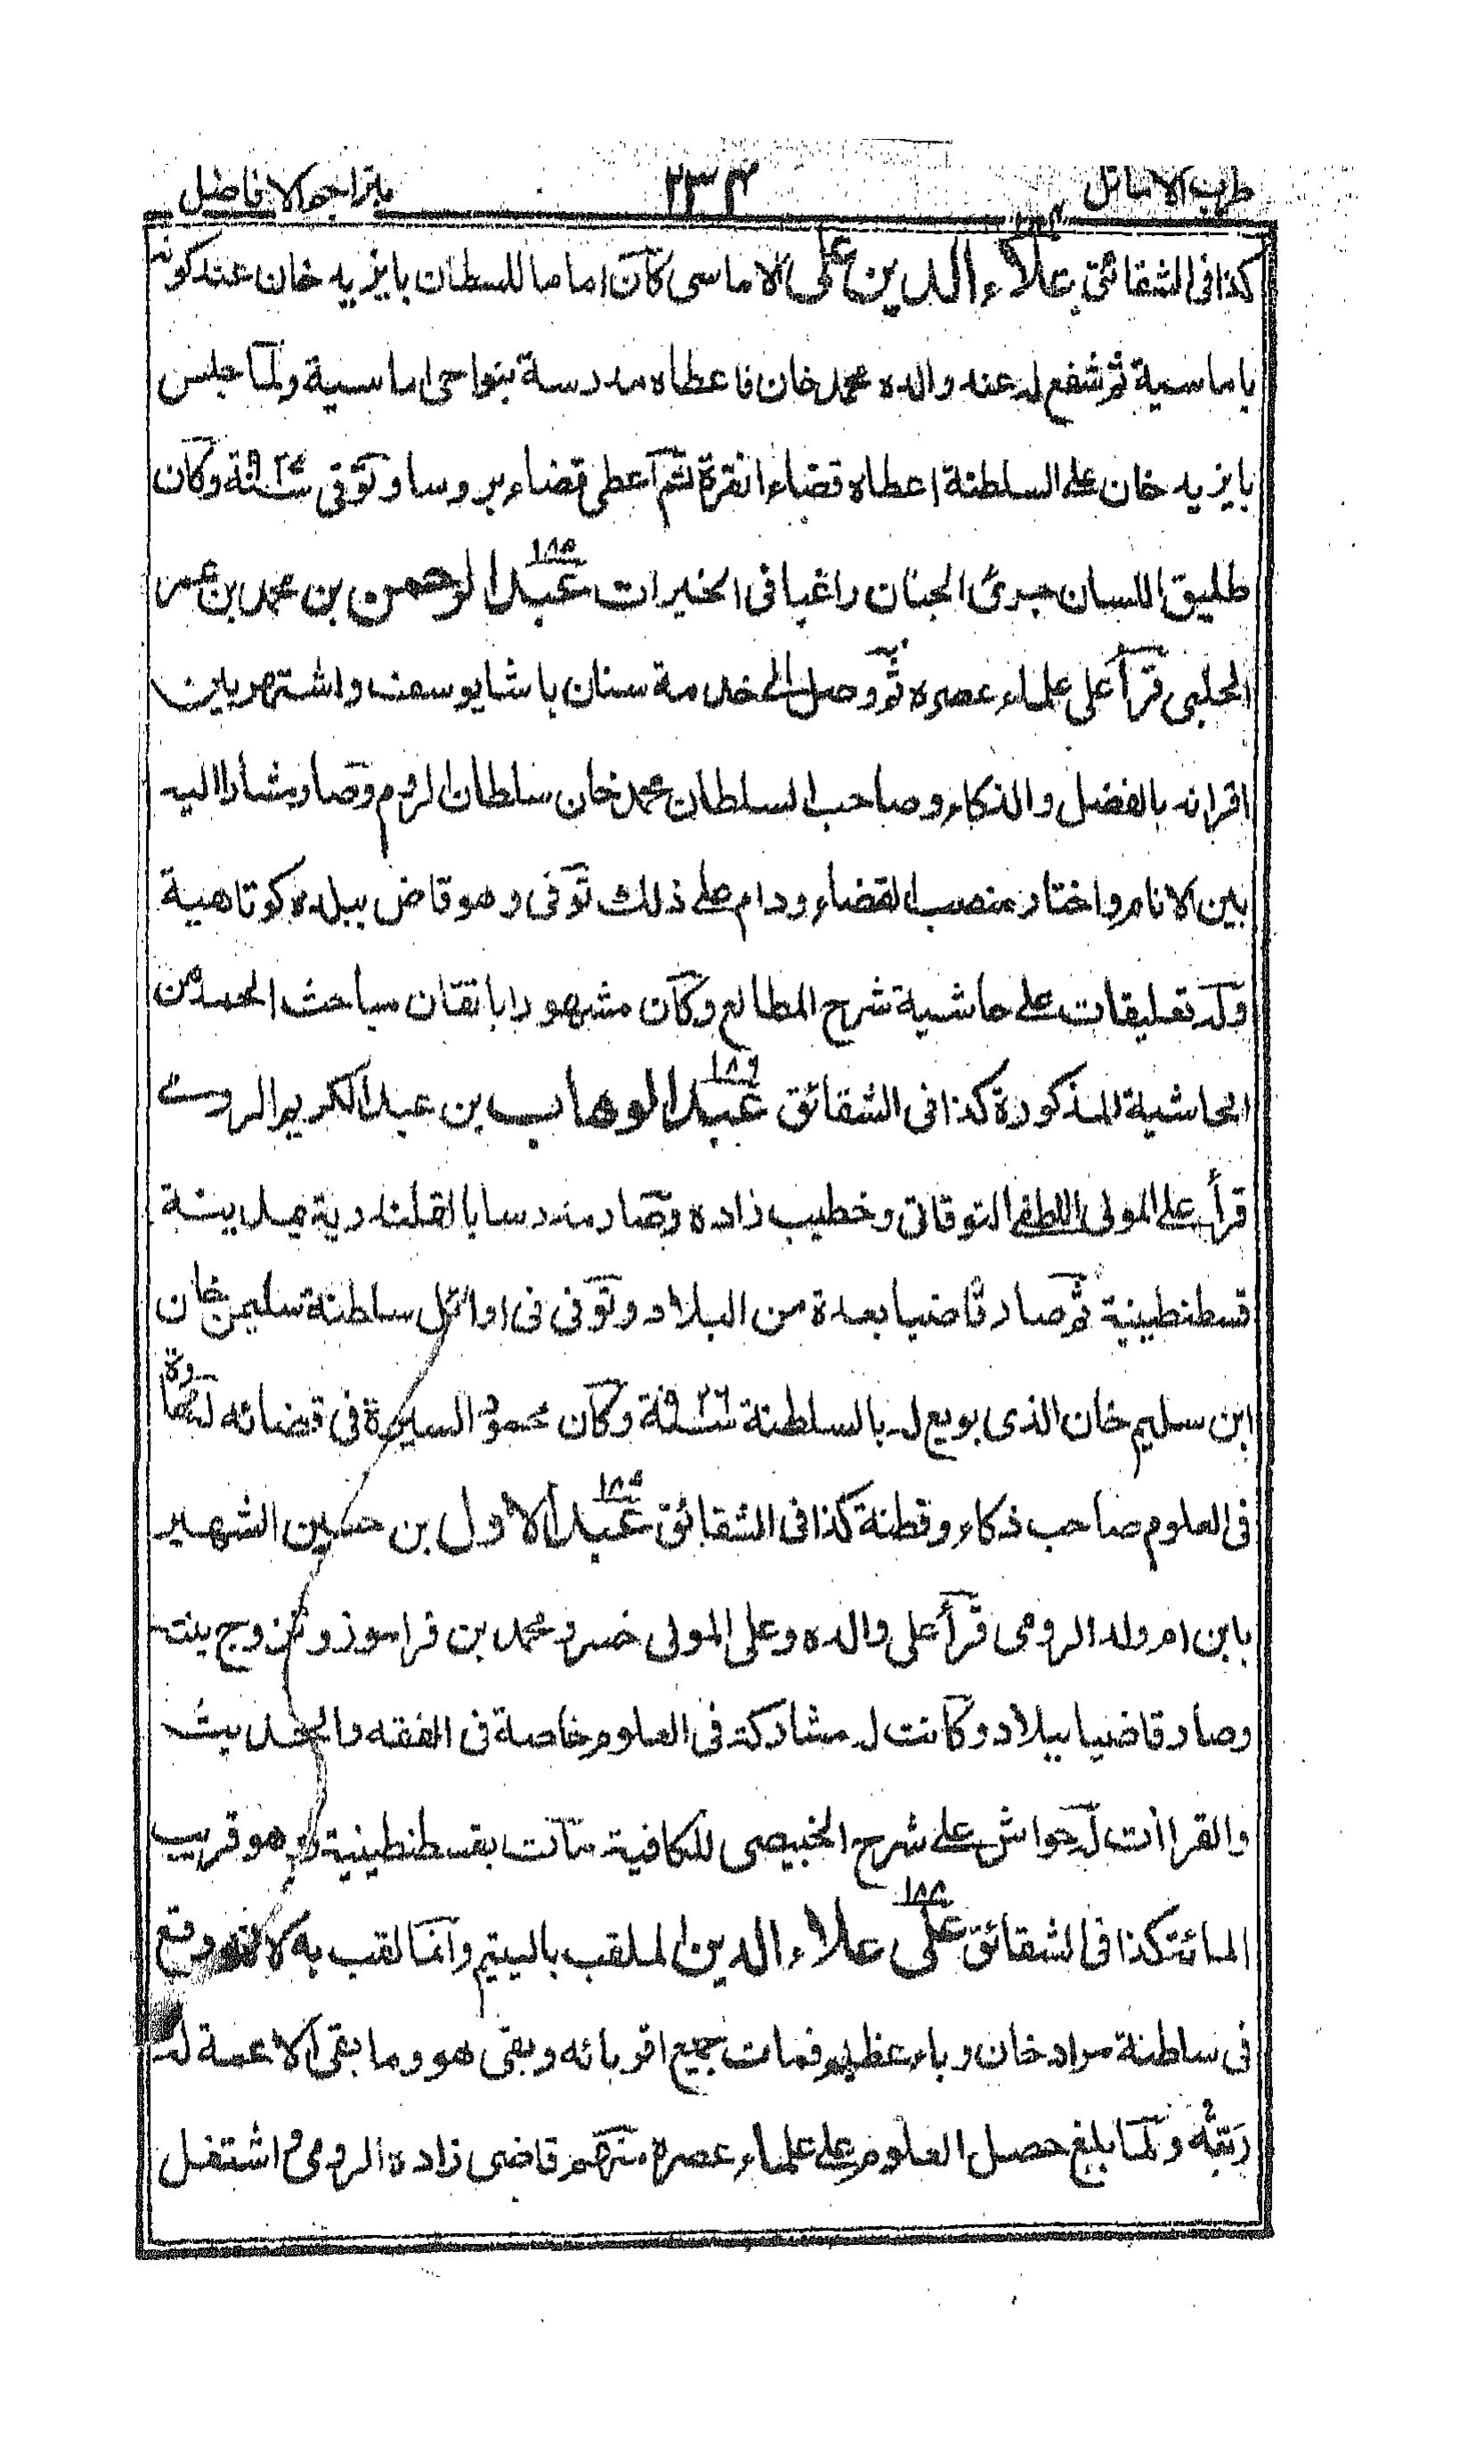 طرب الاماثل ٢٣٤ بتراجم الافاضل
كذا فى الشقائق علاء الدين على الاماسى كان اماما للسلطان بايزيد خان عند كونه
باماسية ثم شفع له عند والده محمد خان فاعطاه مدرسة بنواحى اماسية ولما جلس
بايزيد خان على السلطنة اعطاه قضاء انقرة ثم اعطى قضاء بروسا وتوفى سنة وكان
طليق اللسان جرئ الجنان راغبا فى الخيرات عبد الرحمن بن محمد بن عمر
الحلبى قرأ على علماء عصره ثم وصل الى خدمة سنان باشا يوسف واشتهر بين
اقرانه بالفضل والذكاء وصاحب السلطان محمد خان سلطان الروم وصار مشارا اليه
بين الانام واختار منصب القضاء ودام على ذلك توفى وهو قاض ببلدة كوتاهية
وله تعليقات على حاشية شرح المطالع وكان مشهورا باتقان مباحث الحمد من
الحاشية المذكورة كذا فى الشقائق ١٨٦ عبد الوهاب بن عبد الكريم الرومے
قرأ على المولى اللطفى التوقاتى وخطيب زاده وصار مدرسا بالقلندرية بمدينة
قسطنطينية ثم صار قاضيا بعدة من البلاد وتوفى فى اوائل سلطنة سليمن خان
ابن سليم خان الذى بويع له بالسلطنة سنة ٩٢٦ وكان محمود السيرة فى قضائه له مهارة
فى العلوم صاحب ذكاء وفطنة كذا فى الشقائق عبد الاول بن حسين الشهير
بابن ام ولد الرومى قرأ على والده وعلى المولى خسرو محمد بن فراموز وتزوج بنته
وصار قاضيا ببلاد وكانت له مشاركة فى العلوم خاصة فى الفقه والحديث
والقراأت له حواش على شرح الخبيصى للكافية مات بقسطنطينية وهو قريب
المائة كذا فى الشقائق ١٨٨ على علاء الدين الملقب باليتيم وانما لقب به لانه وقع
فى سلطنة مراد خان وباء عظيم فمات جميع اقربائه وبقى هو وما بقى الا عمة له
ربته ولما بلغ حصل العلوم على علماء عصره منهم قاضى زاده الرومى واشتغل